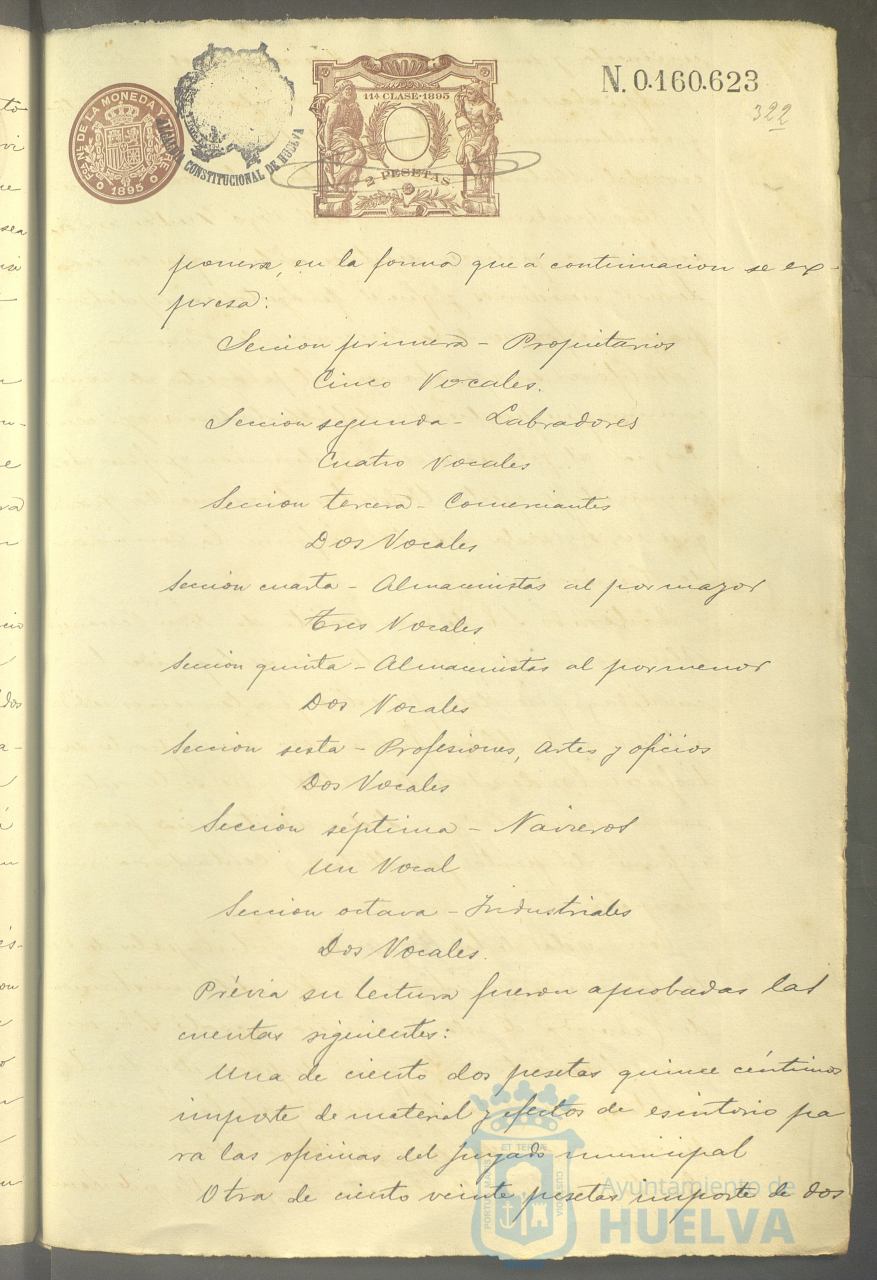 FCA. NL. DE LA MONEDA Y TIMBRE
1895
ALCALDIA CONSTITUCIONAL DE HUELVA
11ª CLASE · 1895
2 PESETAS
N. 0.160.623
322
ponerse, en la forma que á continuacion se ex-
presa:
Seccion primera - Propietarios
Cinco Vocales.
Seccion segunda - Labradores
Cuatro Vocales
Seccion tercera - Comerciantes
Dos Vocales
Seccion cuarta - Almacenistas al por mayor
Tres Vocales
Seccion quinta - Almacenistas al por menor
Dos Vocales
Seccion sesta - Profesiones, Artes y oficios
Dos Vocales
Seccion séptima - Navieros
Un Vocal
Seccion octava - Industriales
Dos Vocales.
Prévia su lectura fueron aprobadas las
cuentas siguientes:
Una de ciento dos pesetas quince céntimos
importe de material y efectos de escritorio pa
ra las oficinas del Juzgado municipal
Otra de ciento veinte pesetas importe de dos
PORTUS MARIS ET TERRE CUSTODIA
Ayuntamiento de
HUELVA